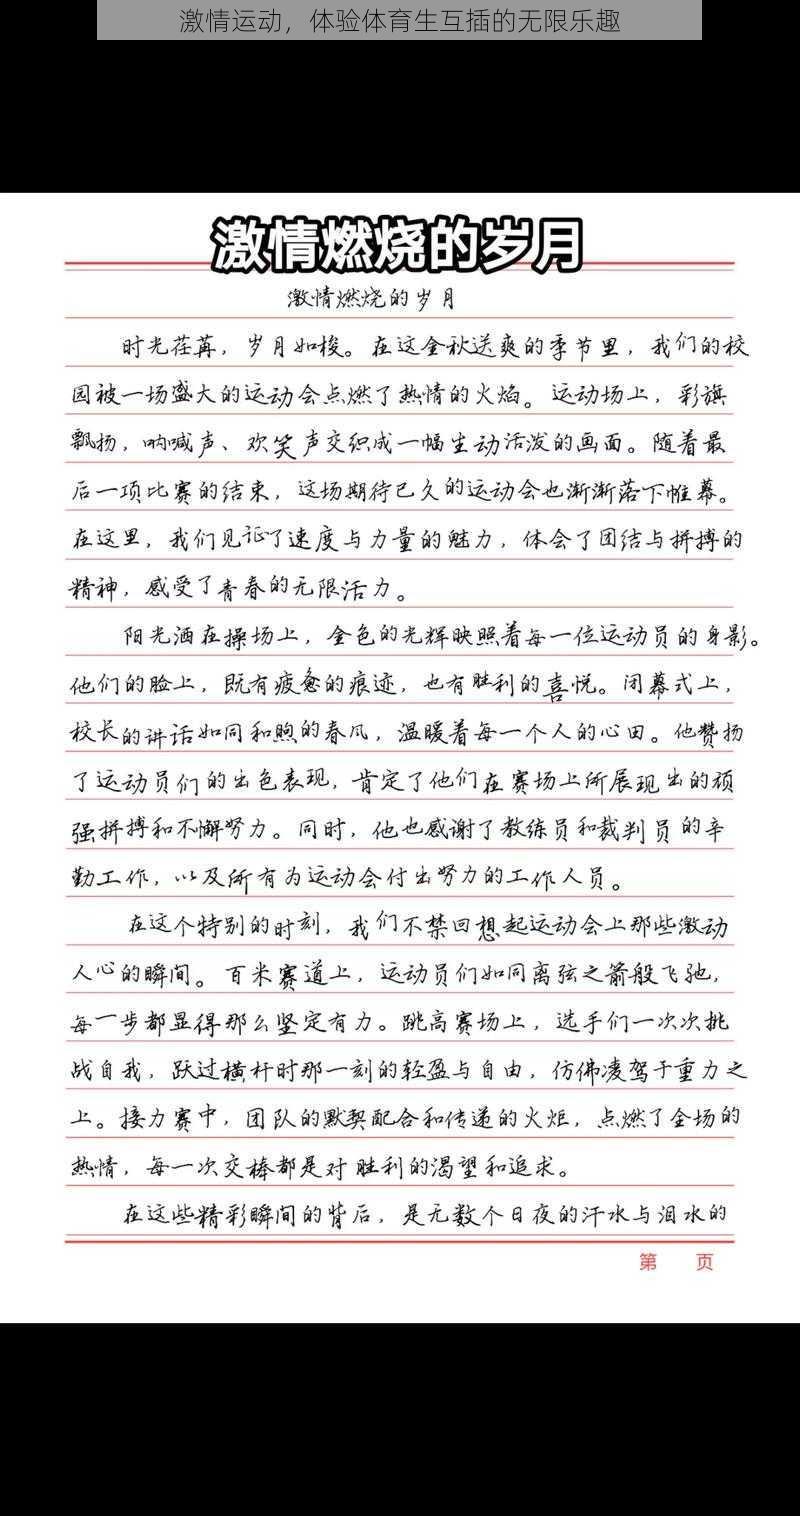 激情运动，体验体育生互插的无限乐趣
激情燃烧的岁月
激情燃烧的岁月
时光荏苒，岁月如梭。在这金秋送爽的季节里，我们的校
园被一场盛大的运动会点燃了热情的火焰。运动场上，彩旗
飘扬，呐喊声、欢笑声交织成一幅生动活泼的画面。随着最
后一项比赛的结束，这场期待已久的运动会也渐渐落下帷幕。
在这里，我们见证了速度与力量的魅力，体会了团结与拼搏的
精神，感受了青春的无限活力。
阳光洒在操场上，金色的光辉映照着每一位运动员的身影。
他们的脸上，既有疲惫的痕迹，也有胜利的喜悦。闭幕式上，
校长的讲话如同和煦的春风，温暖着每一个人的心田。他赞扬
了运动员们的出色表现，肯定了他们在赛场上所展现出的顽
强拼搏和不懈努力。同时，他也感谢了教练员和裁判员的辛
勤工作，以及所有为运动会付出努力的工作人员。
在这个特别的时刻，我们不禁回想起运动会上那些激动
人心的瞬间。百米赛道上，运动员们如同离弦之箭般飞驰，
每一步都显得那么坚定有力。跳高赛场上，选手们一次次挑
战自我，跃过横杆时那一刻的轻盈与自由，仿佛凌驾于重力之
上。接力赛中，团队的默契配合和传递的火炬，点燃了全场的
热情，每一次交棒都是对胜利的渴望和追求。
在这些精彩瞬间的背后，是无数个日夜的汗水与泪水的
第 页